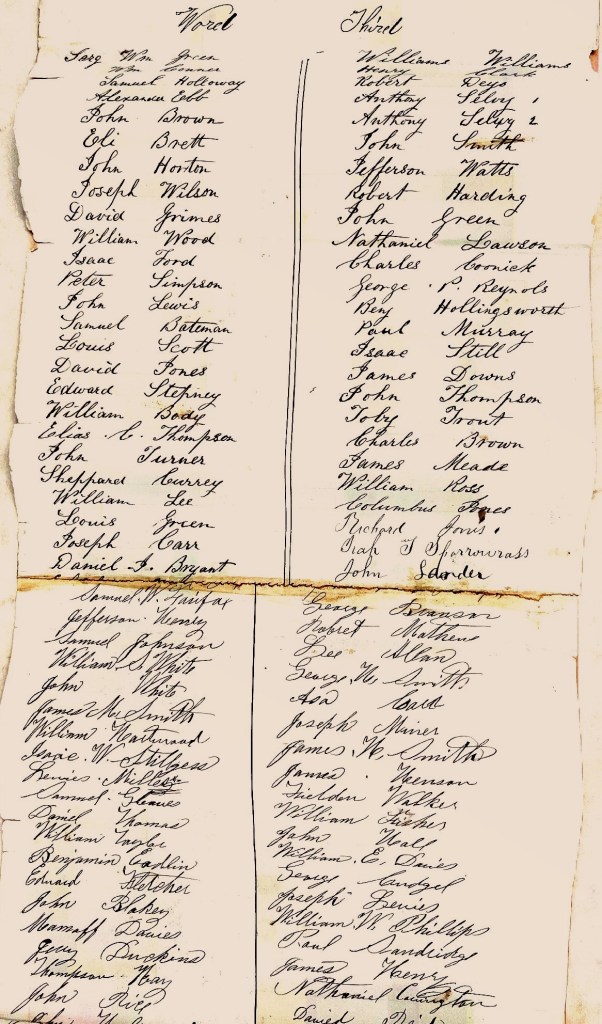 Word Third
Sarg Wm Green
Wm Conner
Samuel Holloway
Alexander Ebb
John Brown
Eli Brett
John Horton
Joseph Wilson
David Grimes
William Wood
Isaac Ford
Peter Simpson
John Lewis
Samuel Bateman
Louis Scott
David Jones
Edward Stepney
William Body
Elias C. Thompson
John Turner
Sheppard Currey
William Lee
Louis Green
Joseph Carr
Daniel J. Bryant
Samuel W. Fairfax
Jefferson Henry
Samuel Johnson
William S. White
John White
James M. Smith
William
Isaac W. Stillgess
Lewis Miller
Samuel Gleaves
Daniel Thomas
William Taylor
Benjamin
Edward Fletcher
John Blakey
Davies
Duckins
Thompson Way
John Rice
Williams Williams
Henry Clark
Robert Deyo
Anthony Selvy 1
Anthony Selvy 2
John Smith
Jefferson Watts
Robert Harding
John Green
Nathaniel Lawson
Charles Coonick
George P. Reynols
Benj Hollingsworth
Paul Murray
Isaac Still
James Downs
John Thompson
Toby Trout
Charles Brown
James Meade
William Ross
Columbus Jones
Richard Jones
T Sparrowrass
John Sander
George Branson
Robret Mathews
Lee Allan
George W. Smith
Asa
Joseph Miner
James W. Smith
James Henson
Fielden Walker
William Fisher
John Hall
William E. Davies
George Cudgel
Joseph Levies
William W. Phillips
Paul Sandridge
James Henry
Nathaniel Covington
David